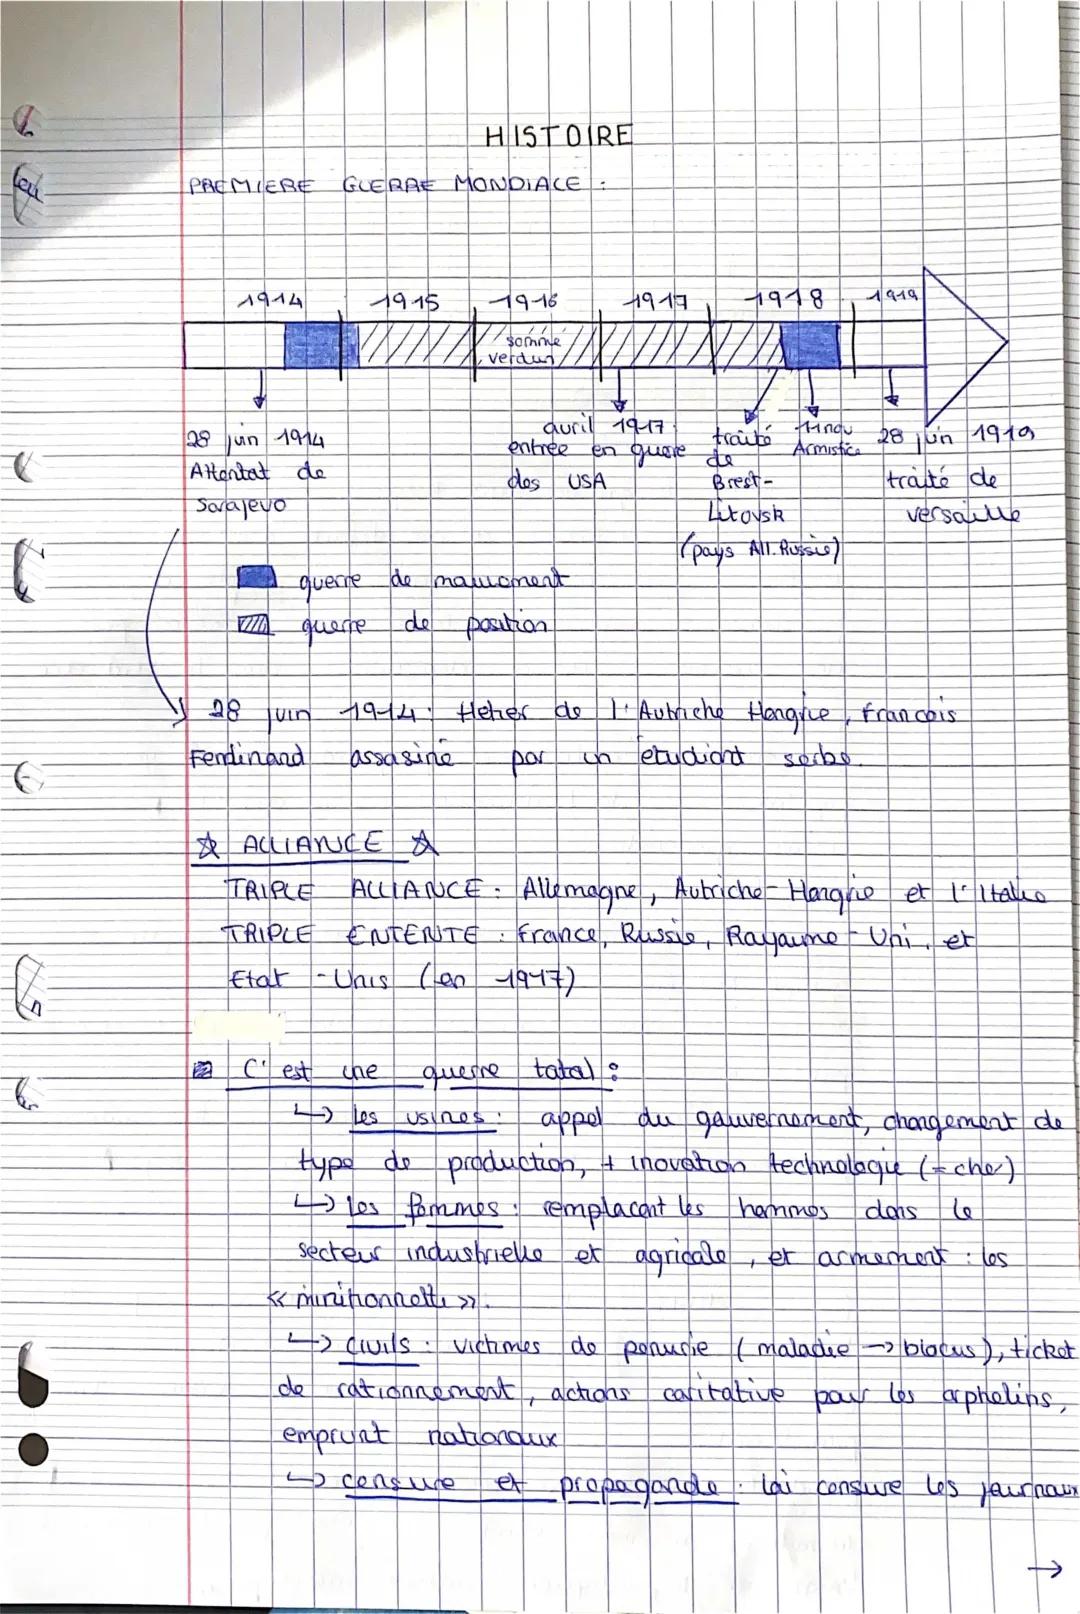 HISTOIRE
PREMIERE GUERRE MONDIALE :
1914 1915 1916 1917 1918 1919
somme
verdun
28 juin 1914
Attentat de
Sarajevo
avril 1917
entrée en guerre
des USA
traité
de
Brest-
Litovsk
(pays All. Russie)
11 nov
Armistice
28 juin 1919
traité de
versaille
guerre de mouvement
guerre de position
28 juin 1914 : Hétier de l'Autriche Hongrie, Francois
Ferdinand assasiné par un étudiant serbe.
☆ ALLIANCE ☆
TRIPLE ALLIANCE : Allemagne, Autriche-Hongrie et l'Italie
TRIPLE ENTENTE : France, Russie, Royaume-Uni, et
Etat-Unis (en 1917)
C'est une guerre total :
↳ les usines : appel du gouvernement, changement de
type de production, + inovation technologie (= cher)
↳ les femmes : remplacent les hommes dans le
secteur industrielle et agricole, et armement : les
« minitionnette ».
↳ civils : victimes de penurie (maladie → blocus), ticket
de rationnement, actions caritative pour les orphelins,
emprunt nationaux
↳ censure et propagande : loi censure les journaux
→